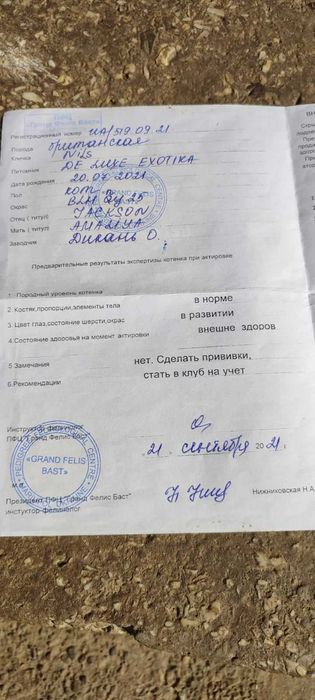 ПФЦ
«Гранд Фелис Баст»
Регистрационный номер UA/519.09.21
Порода британская
Кличка Nils
Питомник DE LUXE EXOTIKA
Дата рождения 20.07.2021
Пол кот
Окрас BLH
Отец ( титул) JACKSON
Мать ( титул) AMALIYA
Заводчик Дикань О.
Предварительные результаты экспертизы котенка при актировке
1 Породный уровень котенка
2. Костяк,пропорции,элементы тела в норме
3. Цвет глаз,состояние шерсти,окрас в развитии
4.Состояние здоровья на момент актировки внешне здоров
5.Замечания нет. Сделать прививки,
6.Рекомендации стать в клуб на учет
Инструктор-фелинолог
ПФЦ "Гранд Фелис Баст"
«GRAND FELIS
BAST»
21 сентября 2021.
м.п.
Президент ПФЦ "Гранд Фелис Баст" Нижниховская Н.А
инструктор-фелинолог